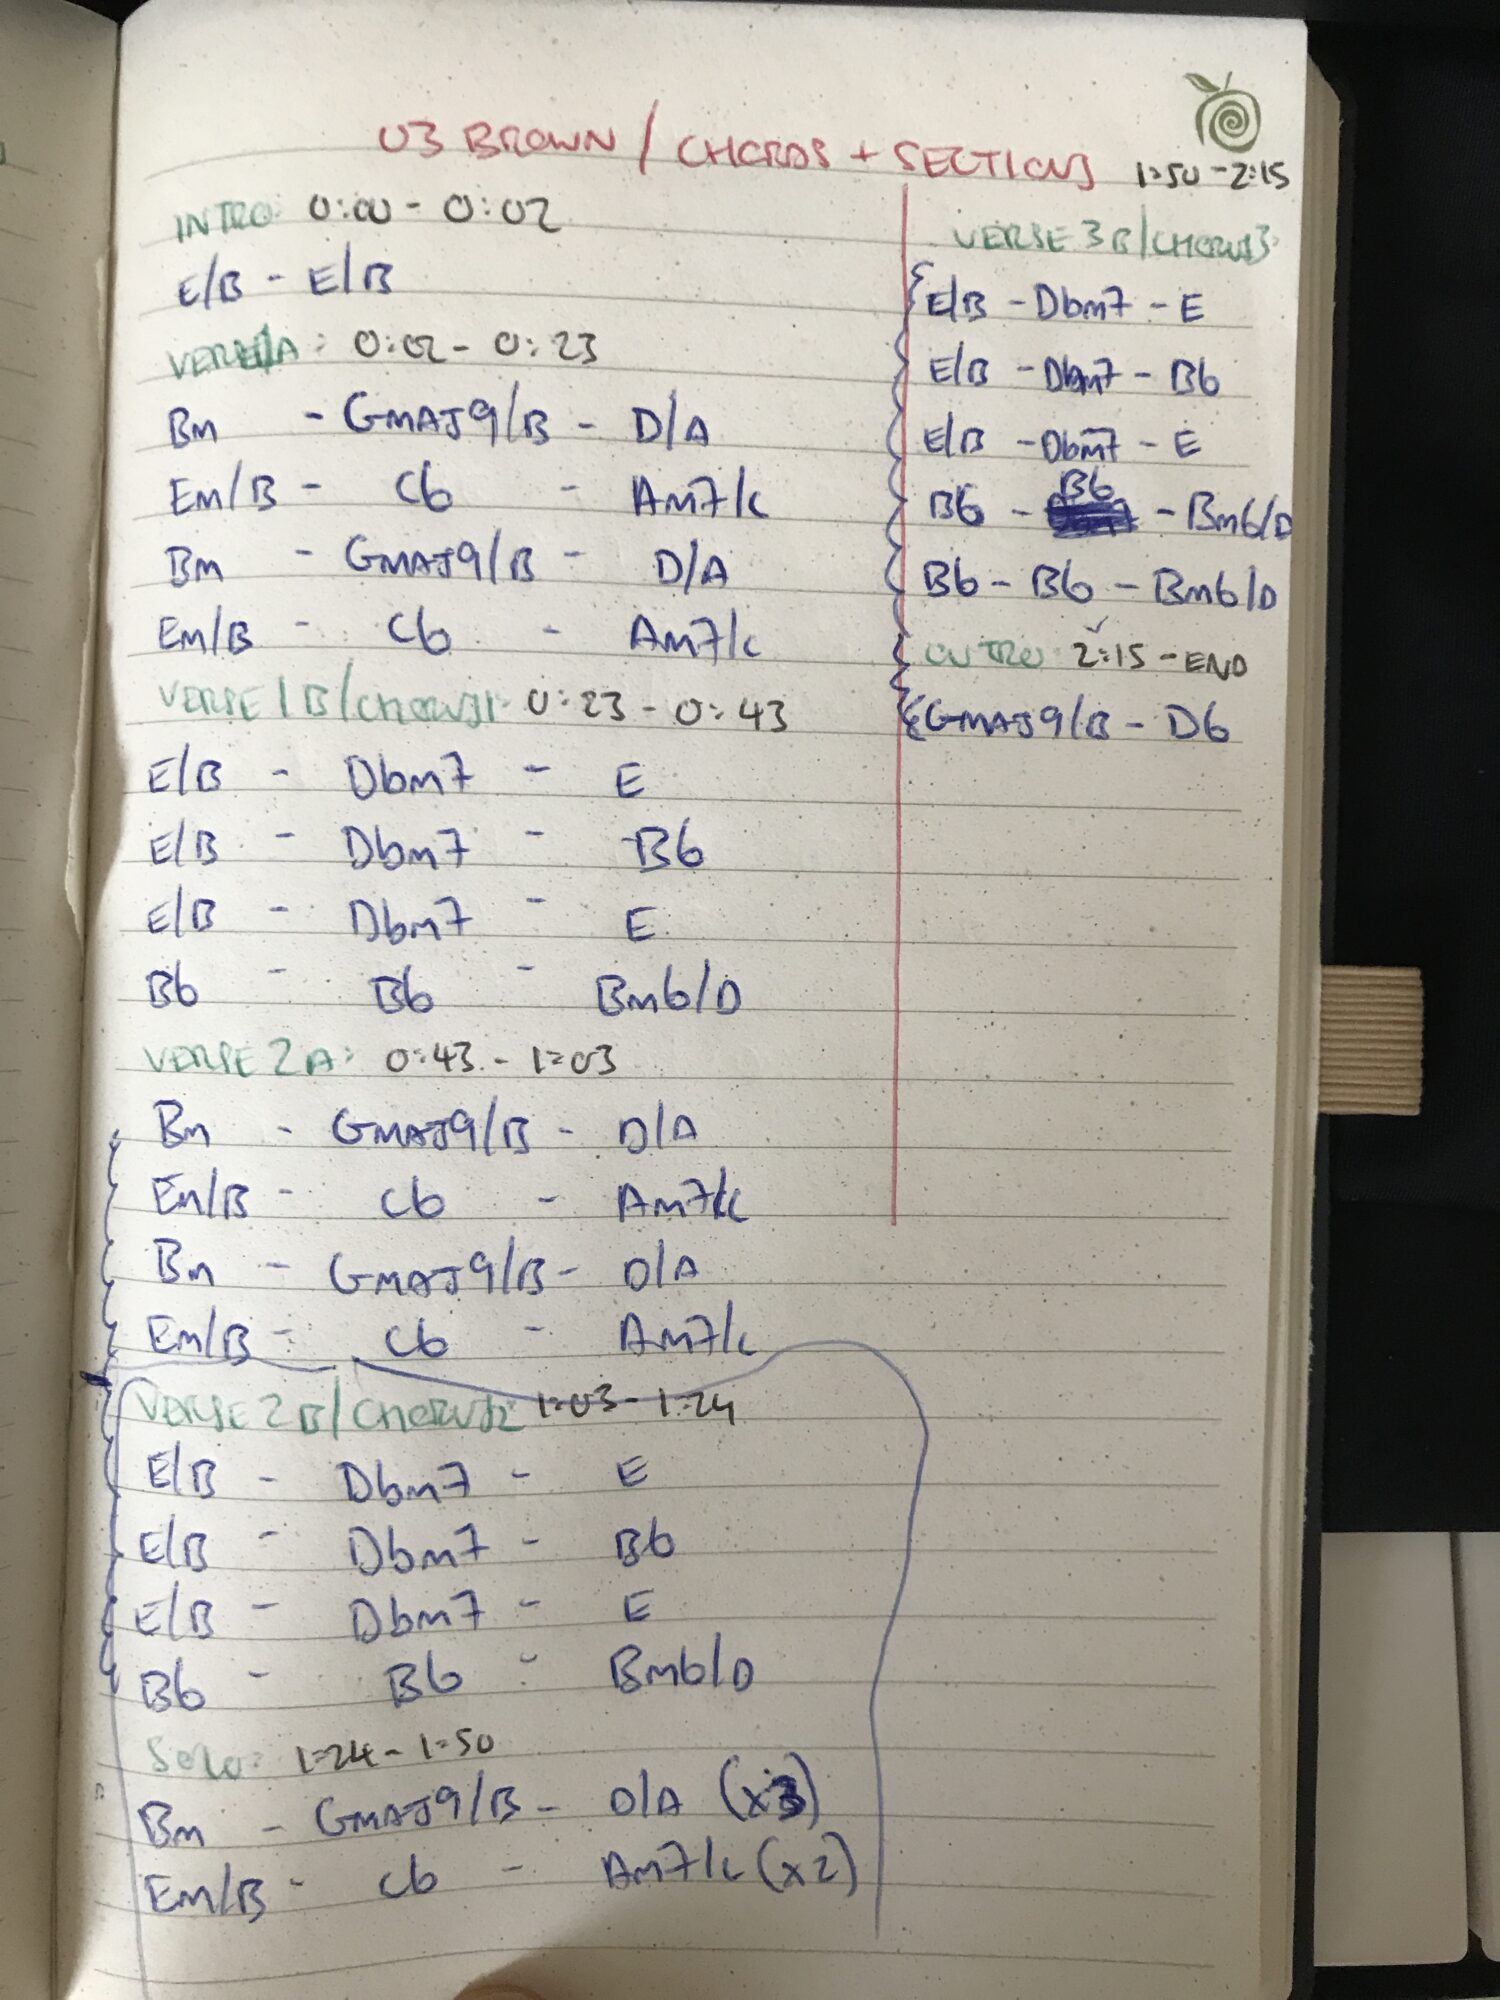 03 BROWN / CHORDS + SECTIONS
INTRO: 0:00 - 0:02
E/B - E/B
VERSE 1A: 0:02 - 0:23
Bm - GMAJ9/B - D/A
Em/B - C6 - Am7/C
Bm - GMAJ9/B - D/A
Em/B - C6 - Am7/C
VERSE 1B/CHORUS1: 0:23 - 0:43
E/B - Dbm7 - E
E/B - Dbm7 - B6
E/B - Dbm7 - E
B6 - B6 - Bm6/D
VERSE 2A: 0:43 - 1:03
Bm - GMAJ9/B - D/A
Em/B - C6 - Am7/C
Bm - GMAJ9/B - D/A
Em/B - C6 - Am7/C
VERSE 2B/CHORUS2: 1:03 - 1:24
E/B - Dbm7 - E
E/B - Dbm7 - B6
E/B - Dbm7 - E
B6 - B6 - Bm6/D
SOLO: 1:24 - 1:50
Bm - GMAJ9/B - D/A (x3)
Em/B - C6 - Am7/C (x2)
1:50 - 2:15
VERSE 3B/CHORUS3:
E/B - Dbm7 - E
E/B - Dbm7 - B6
E/B - Dbm7 - E
B6 - B6 - Bm6/D
B6 - B6 - Bm6/D
OUTRO: 2:15 - END
GMAJ9/B - D6